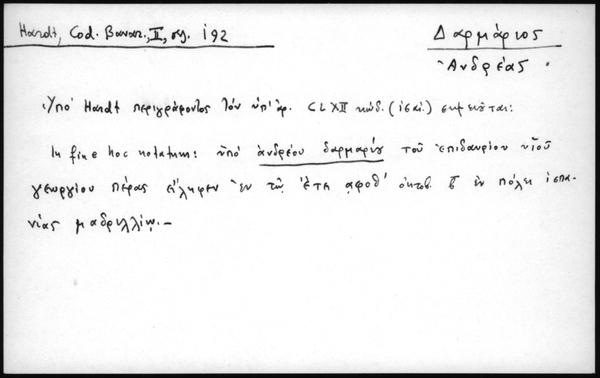 Hardt, Cod. Bavar., II, σελ. 192
Δαρμάριος
Ἀνδρέας.
Ὑπὸ Hardt περιγράφοντος τὸν ὑπ' ἀρ. CLXII κώδ. (ἰσαί.) σημειοῦται:
In fine hoc notatum: ὑπὸ ἀνδρέου δαρμαρίου τοῦ ἐπιδαυρίου υἱοῦ
γεωργίου πέρας εἴληφεν ἐν τῷ ἔτει ͵αφοθ' ὀκτωβ. ἐν πόλει ἱσπα-
νίας μαδριλλίῳ.—